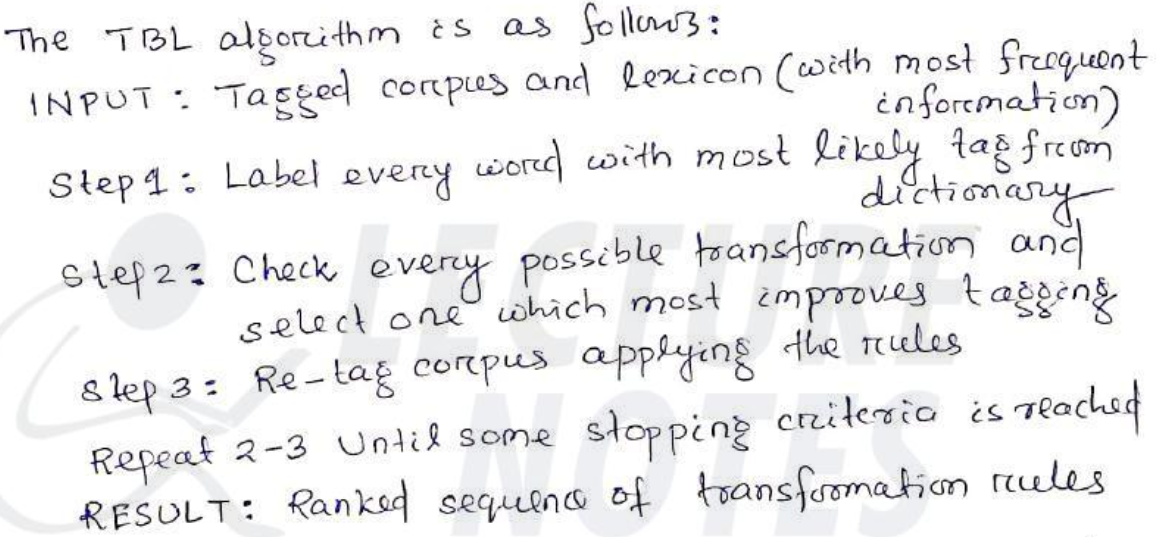 The TBL algorithm is as follows:
INPUT : Tagged corpus and lexicon (with most frequent
information)
Step 1 : Label every word with most likely tag from
dictionary
Step 2 : Check every possible transformation and
select one which most improves tagging
Step 3 : Re-tag corpus applying the rules
Repeat 2-3 Until some stopping criteria is reached
RESULT : Ranked sequence of transformation rules
LECTURE
NOTES